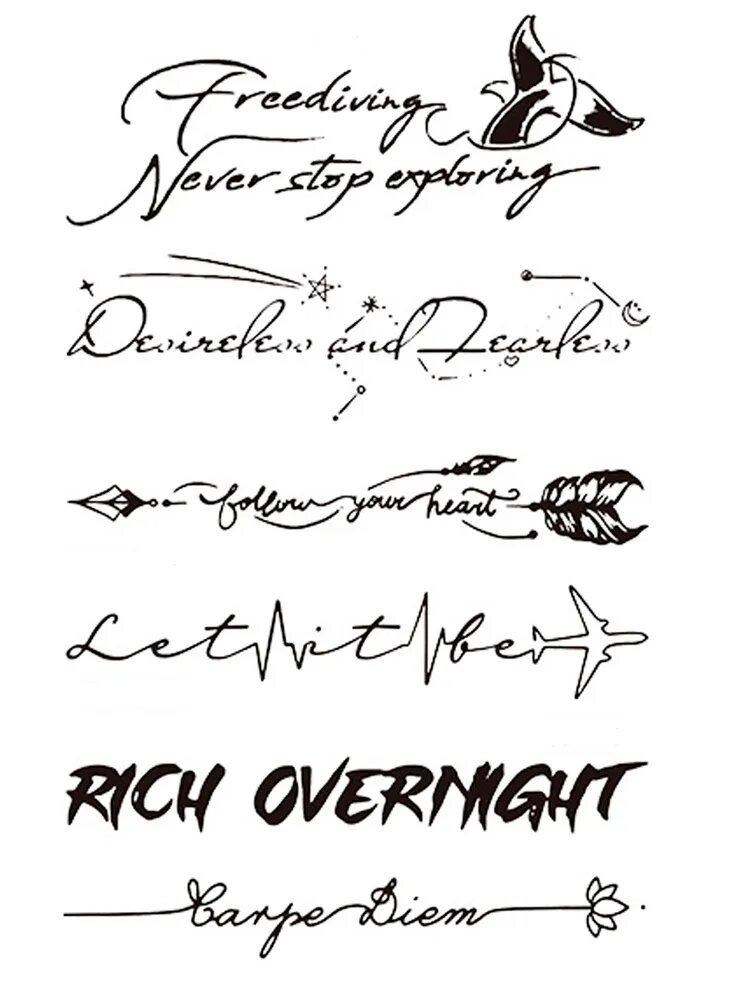 Freediving
Never stop exploring
Desireless and Fearless
follow your heart
Let it be
RICH OVERNIGHT
Carpe Diem